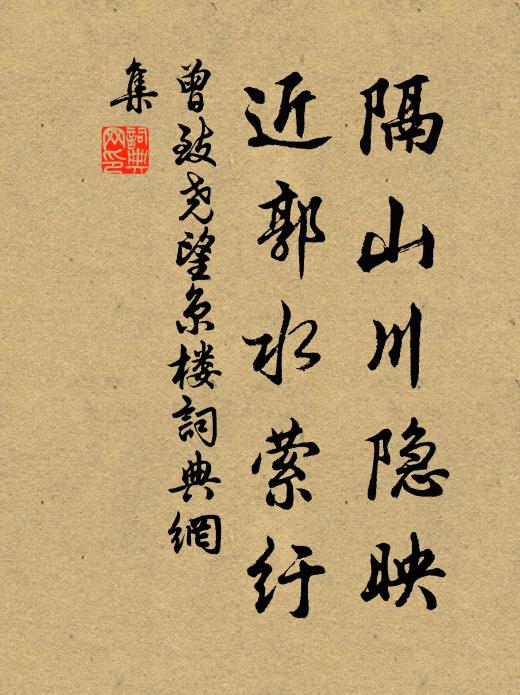 隔山川隐映
近郭水萦纡
曾致尧望京楼詞典網
集
詞典
网印